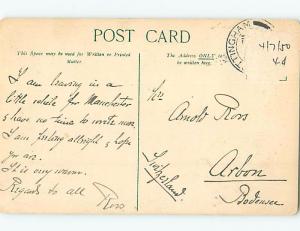 POST CARD
This Space may be used for Written or Printed Matter.
The Address ONLY to be written here.
TTINGHAM
4/7/50
4d
I am leaving in a
little while for Manchester
& have no time to write more.
I am feeling allright & hope
you are.
It is very warm.
Regards to all
Ross
Arnold Ross
Arbon
Bodensee
Switzerland
L